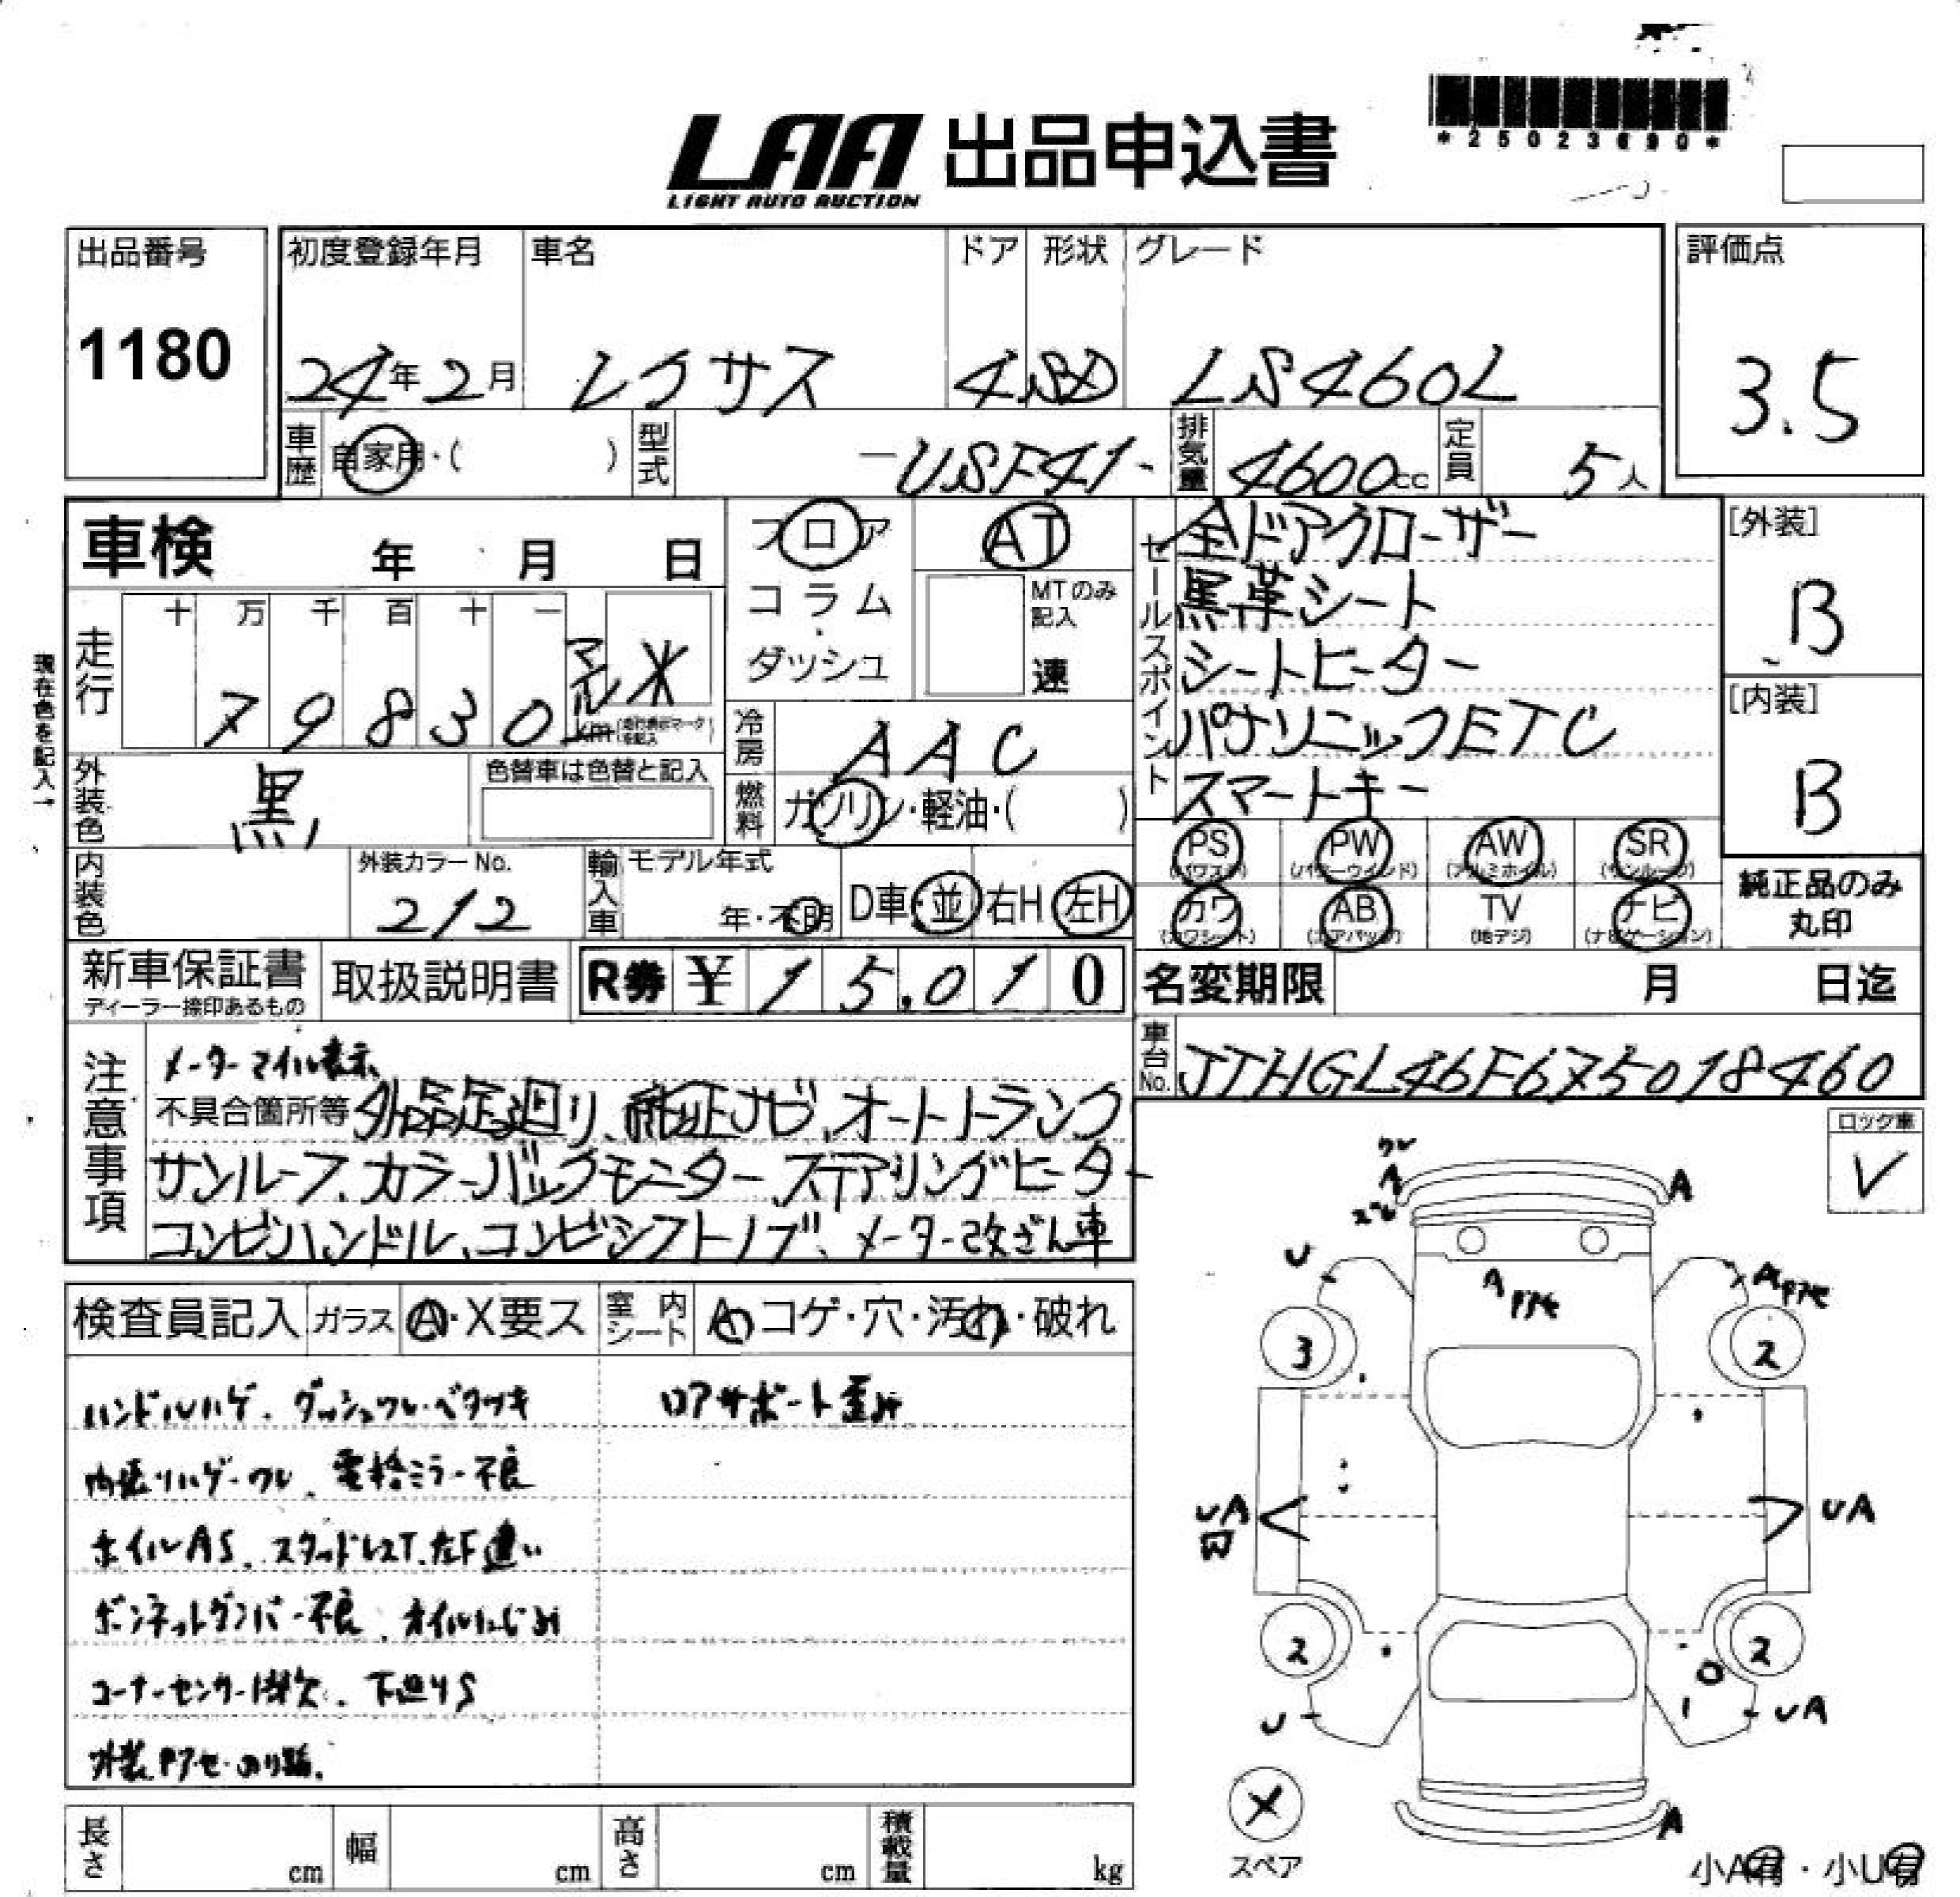 *25023690*
LAA 出品申込書
LIGHT AUTO AUCTION
出品番号
1180
初度登録年月
24年2月
車名
レクサス
ドア
4
形状
SD
グレード
LS460L
評価点
3.5
車歴 自家用・( )
型式 -USF41-
排気量 4600cc
定員 5人
車検 年 月 日
フロア
コラム
ダッシュ
AT
MTのみ記入
速
セールスポイント
全ドアクローザー
黒革シート
シートヒーター
パナソニックETC
スマートキー
[外装]
B
[内装]
B
現在色を記入→
走行
十 万 千 百 十 一
79830 マイル km
*
(走行表示マークを記入)
冷房 AAC
燃料 ガソリン・軽油・( )
外装色 黒
色替車は色替と記入
内装色
外装カラーNo.
212
輸入車
モデル年式
年・不明
D車・並 右H・左H
PS (パワステ)
PW (パワーウインド)
AW (アルミホイル)
SR (サンルーフ)
カワ (カワシート)
AB (エアバッグ)
TV (地デジ)
ナビ (ナビゲーション)
純正品のみ
丸印
新車保証書
ディーラー捺印あるもの
取扱説明書
R券 ¥ 15,010
名変期限 月 日迄
車台No. JTHGL46F675018460
注意事項
メーターマイル表示
不具合箇所等 外品足廻り、純正ナビ、オートトランク
サンルーフ、カラーバックモニター、ステアリングヒーター
コンビハンドル、コンビシフトノブ、メーター改ざん車
ロック車
V
検査員記入 ガラス A・X要ス
室内シート A コゲ・穴・汚れ・破れ
ハンドルハゲ、ダッシュワレ・ベタツキ
ロアサポート歪み
内張りハゲ・ワレ、電格ミラー不良
ホイルAS、スタッドレスT、左F違い
ボンネットダンパー不良、オイルにじみ
コーナーセンサー1ケ欠、下廻りS
外装色アセ・のり跡、
ワレ
A
ズレ
A
U
A
色アセ
A色アセ
3
2
UA
凹
UA
2
2
U
UA
A
X
スペア
小A有・小U有
長さ cm
幅 cm
高さ cm
積載量 kg